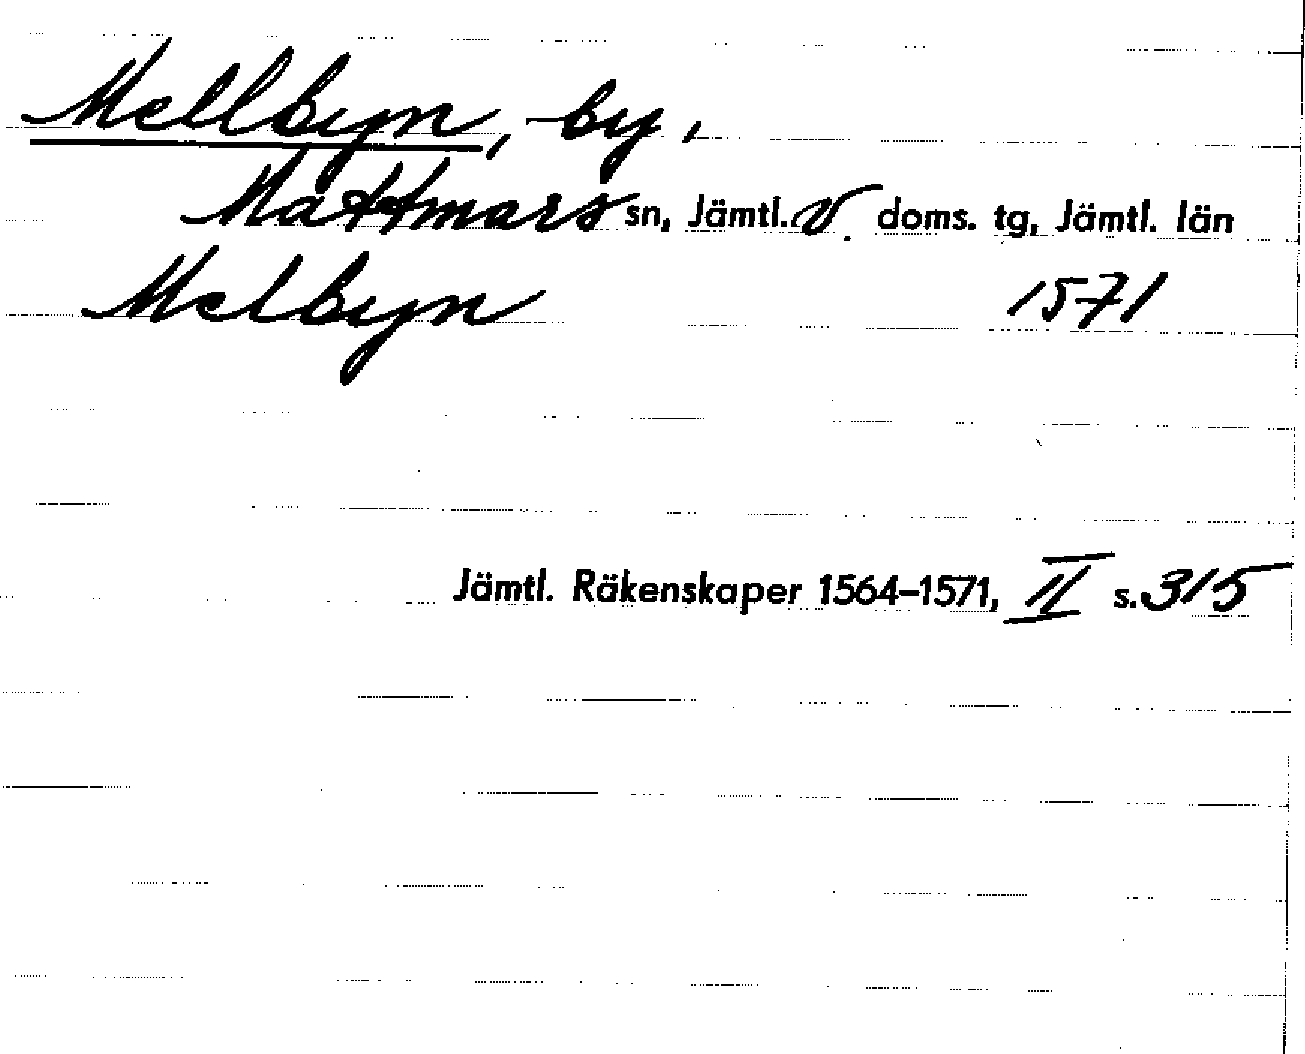 Mellbyn, by,
Mattmars sn, Jämtl. v. doms. tg, Jämtl. län
Melbyn 1571
Jämtl. Räkenskaper 1564–1571, II s. 315